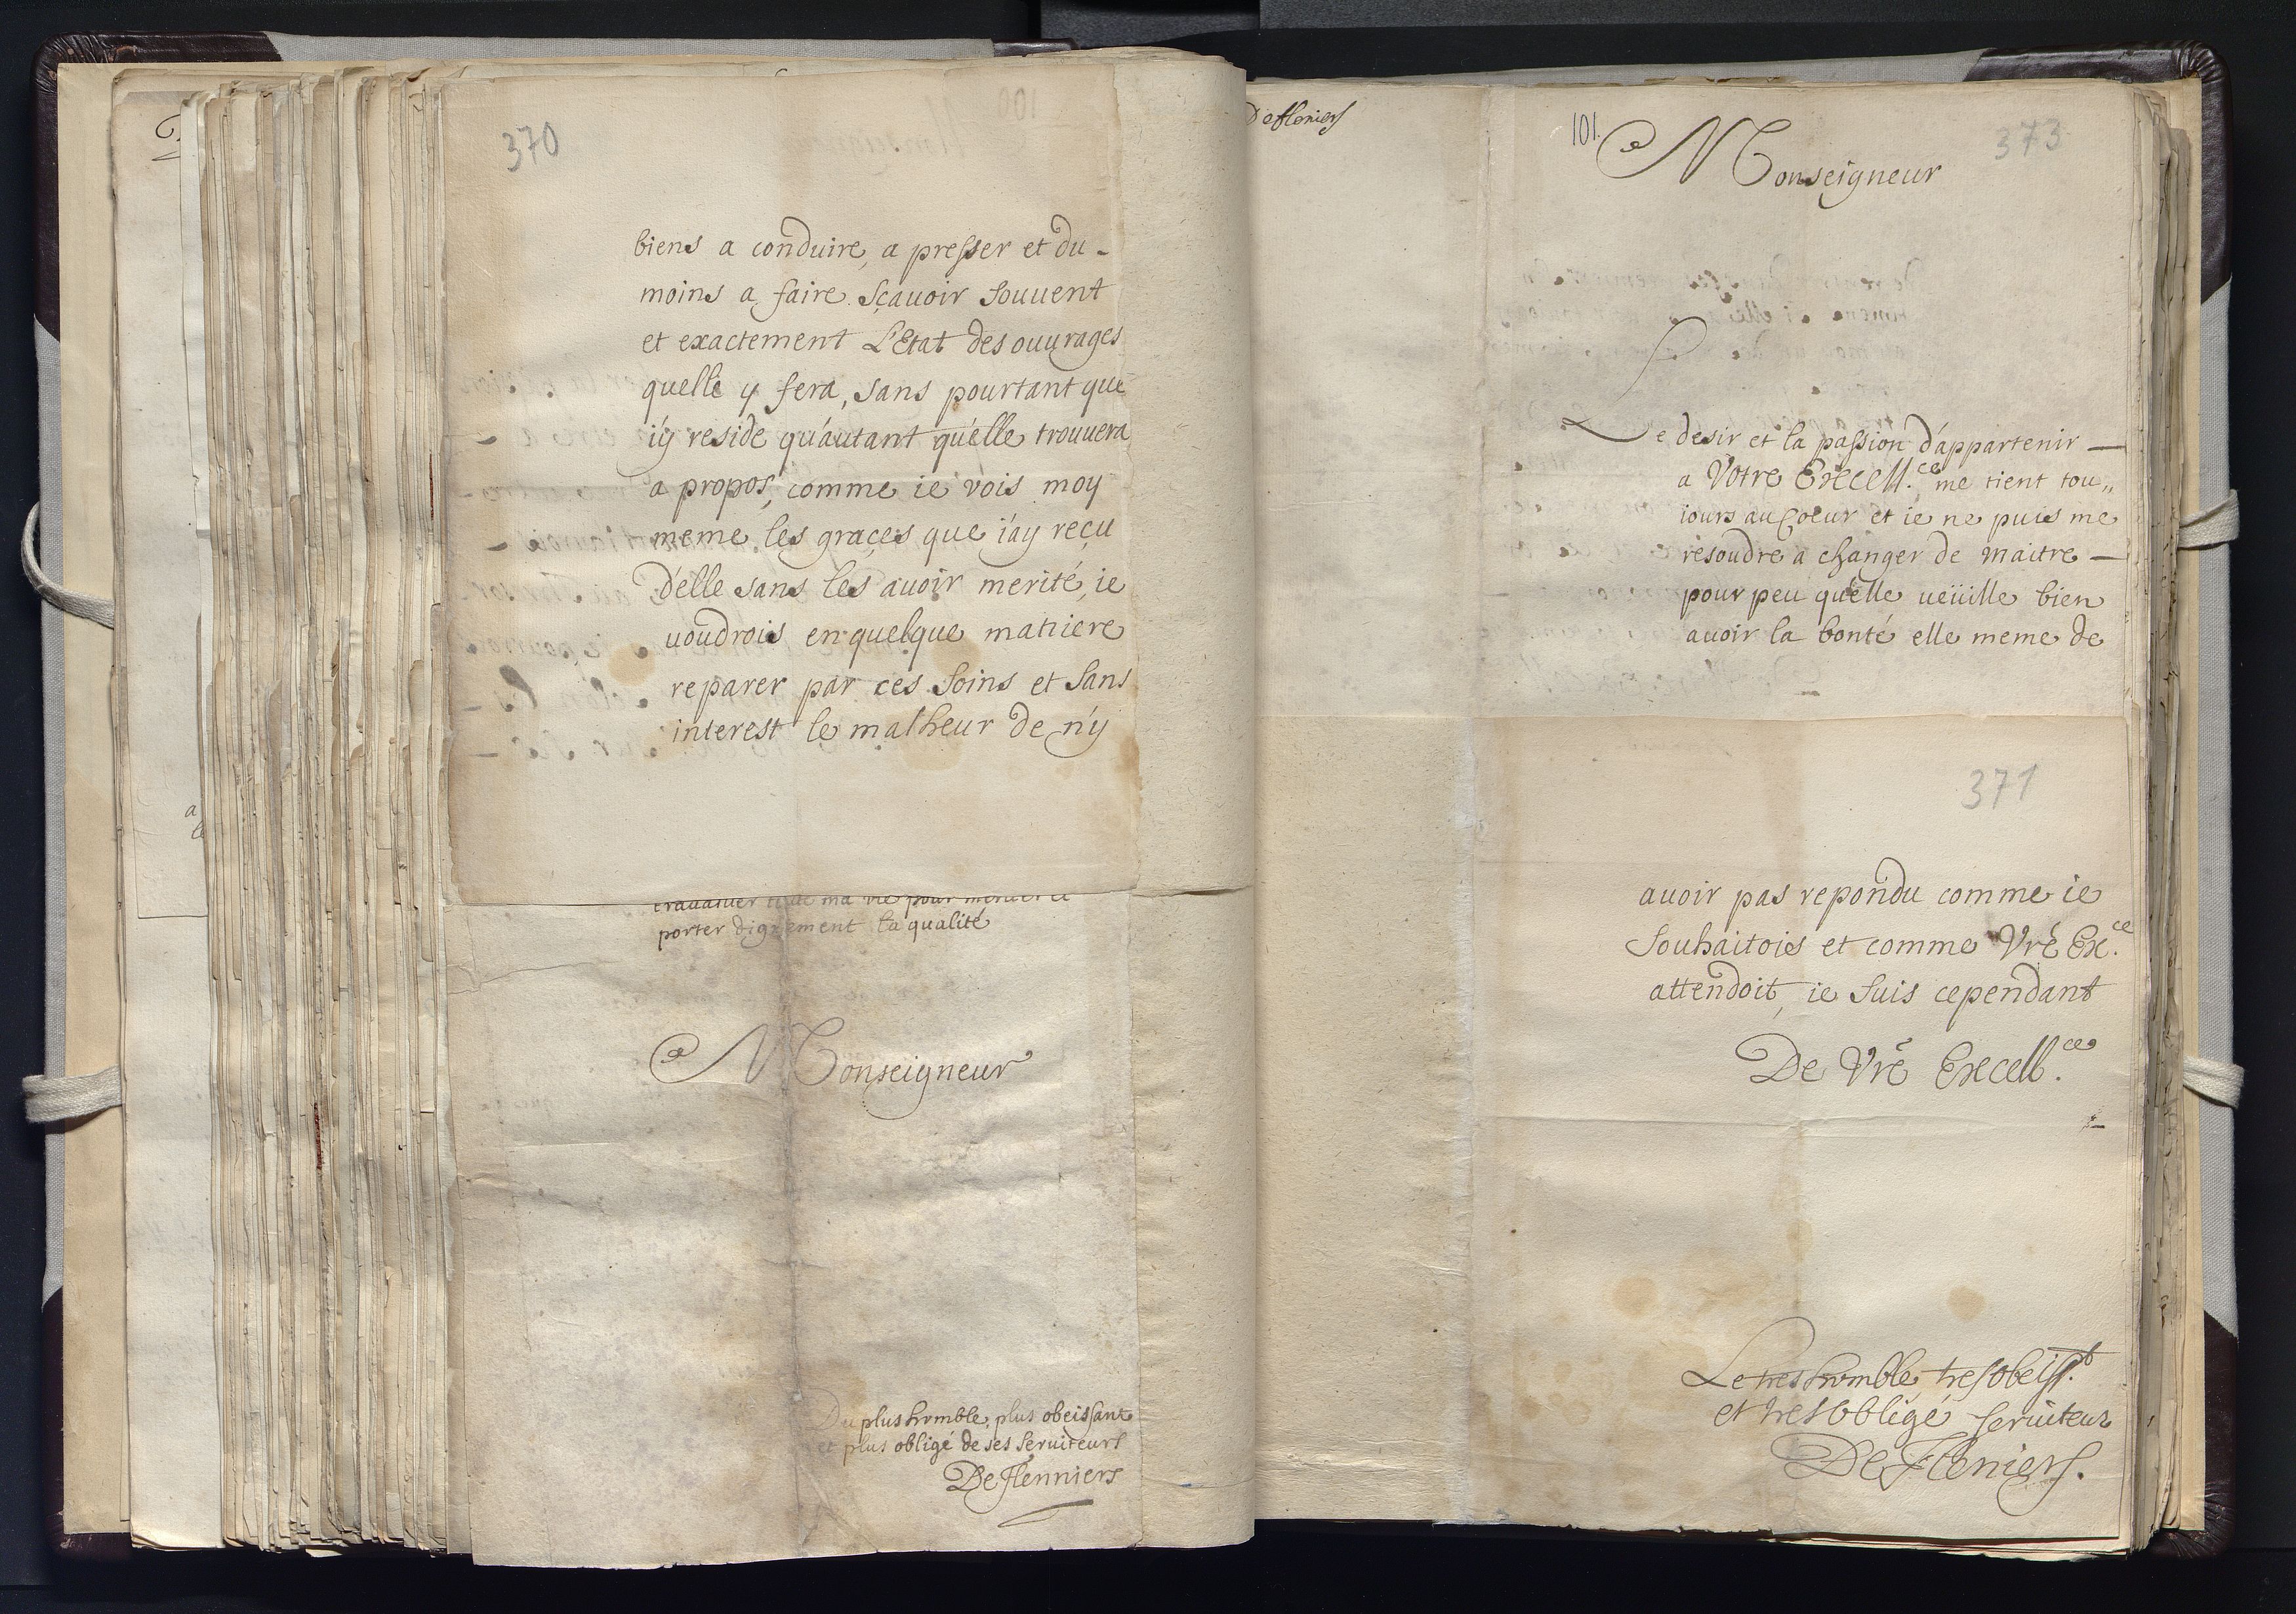 370
biens a conduire, a presser et du-
moins a faire sçavoir souuent
et exactement L'Etat des ouurages
quelle y fera, sans pourtant que
i'y reside qu'autant qu'elle trouuera
a propos, comme ie vois moy
meme les graces que i'ay reçu
d'elle sans les auoir merité, ie
uoudrois en quelque maniere
reparer par ces soins et sans
interest le malheur de n'y
ma vie pour
porter dignement la qualité
Monseigneur
Du plus humble, plus obeissant
et plus obligé de ses seruiteurs
De Flenniers
De fleniers
101.
373
Monseigneur
Le desir et la passion d'appartenir —
a Votre Excell.ce me tient tou„
iours au Coeur et ie ne puis me
resoudre a changer de maitre —
pour peu qu'elle ueüille bien
auoir la bonté elle meme de
371
auoir pas repondu comme ie
souhaitois et comme Vre Ex.ce
attendoit, ie suis cependant
De Vre Excell.ce
Le tres humble, tres obeiss.t
et tres obligé seruiteur
De Fleniers.